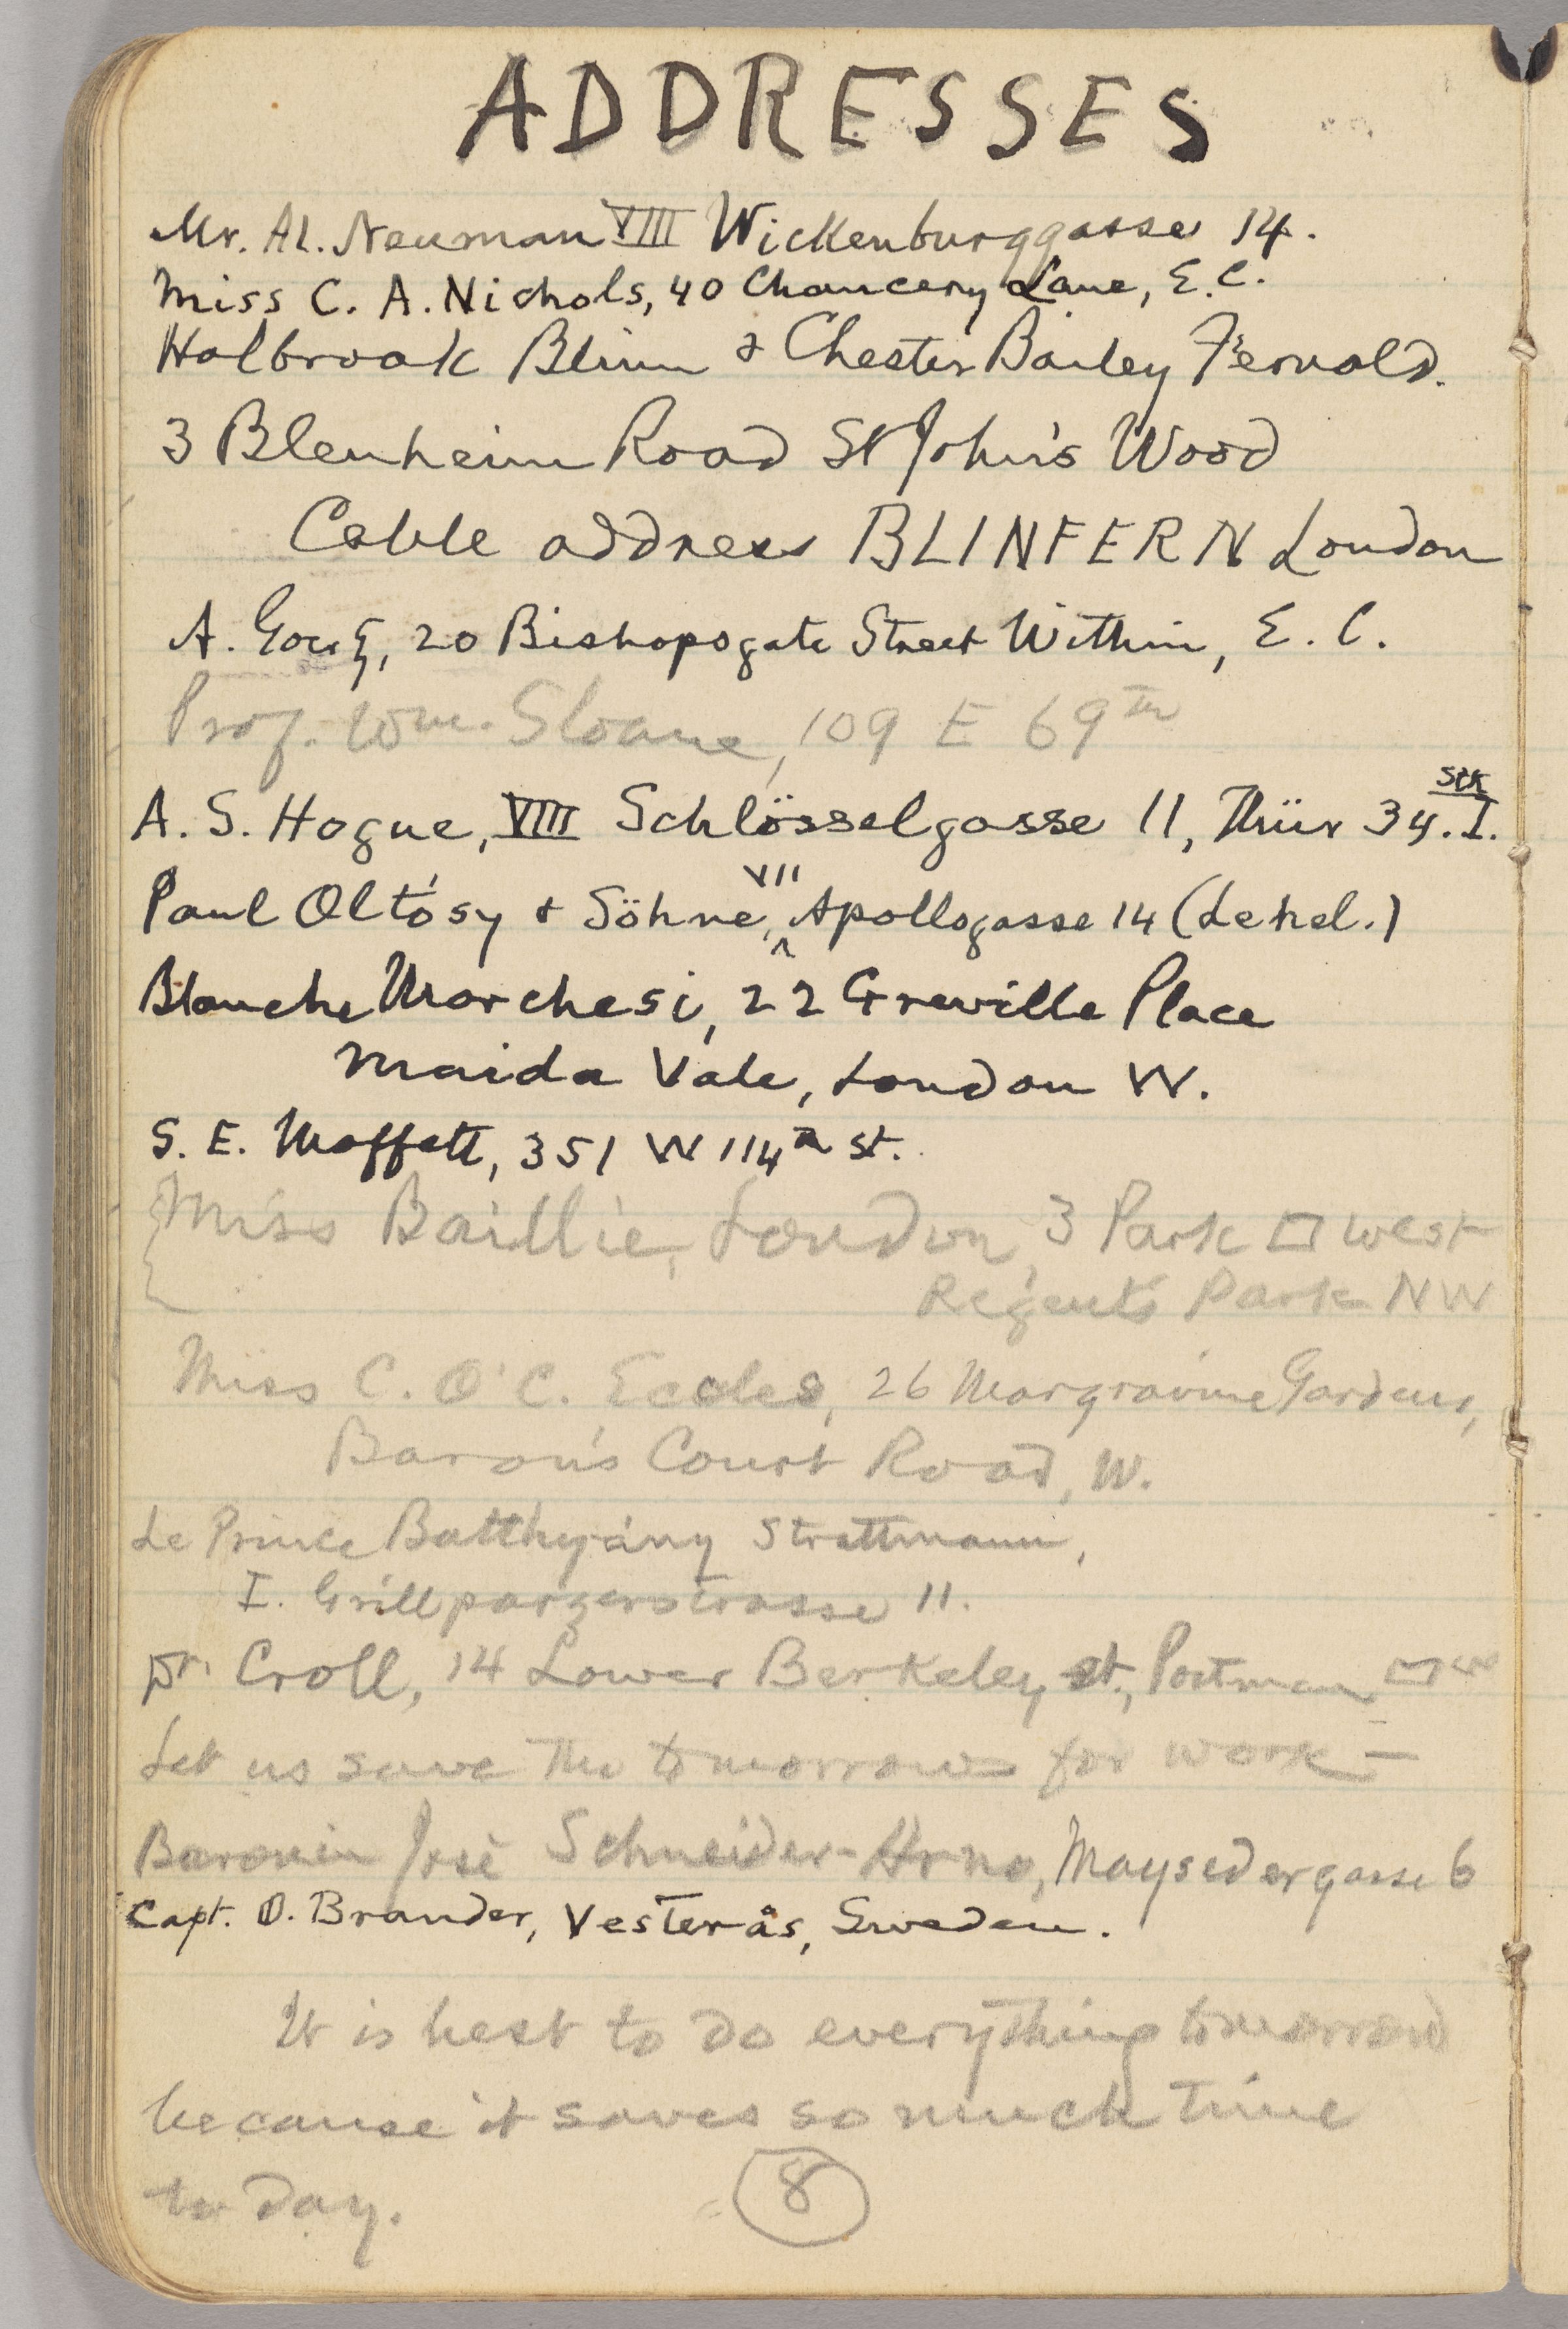 ADDRESSES
Mr. Al. Neuman VIII Wickenburggasse 14.
Miss C. A. Nichols, 40 Chancery Lane, E.C.
Holbrook Blinn & Chester Bailey Fernald.
3 Blenheim Road St John's Wood
Cable address BLINFERN London
A. 20 Bishopsgate Street Within, E. C.
Prof. Wm. Sloane, 109 E 69th
A. S. Hogue, VIII Schlösselgasse 11, Thür 34. I. Stk
Paul Oltósy & Söhne, VII Apollogasse 14 (Lehel.)
Blanche Marchesi, 22 Greville Place
Maida Vale, London W.
S. E. Moffett, 351 W 114th St.
Miss Baillie, London, 3 Park □ West
Regent's Park NW
Miss C. O'C. Eccles, 26 Margravine Gardens,
Baron's Court Road, W.
Le Prince Batthyány Strattmann,
I. Grillparzerstrasse 11.
Dr. Croll, 14 Lower Berkeley st., Portman □ W
Let us save the tomorrows for work —
Baronin José Schneider-Arno, Maysedergasse 6
Capt. O. Brander, Vesterås, Sweden.
It is best to do everything tomorrow
because it saves so much time
to day.
8